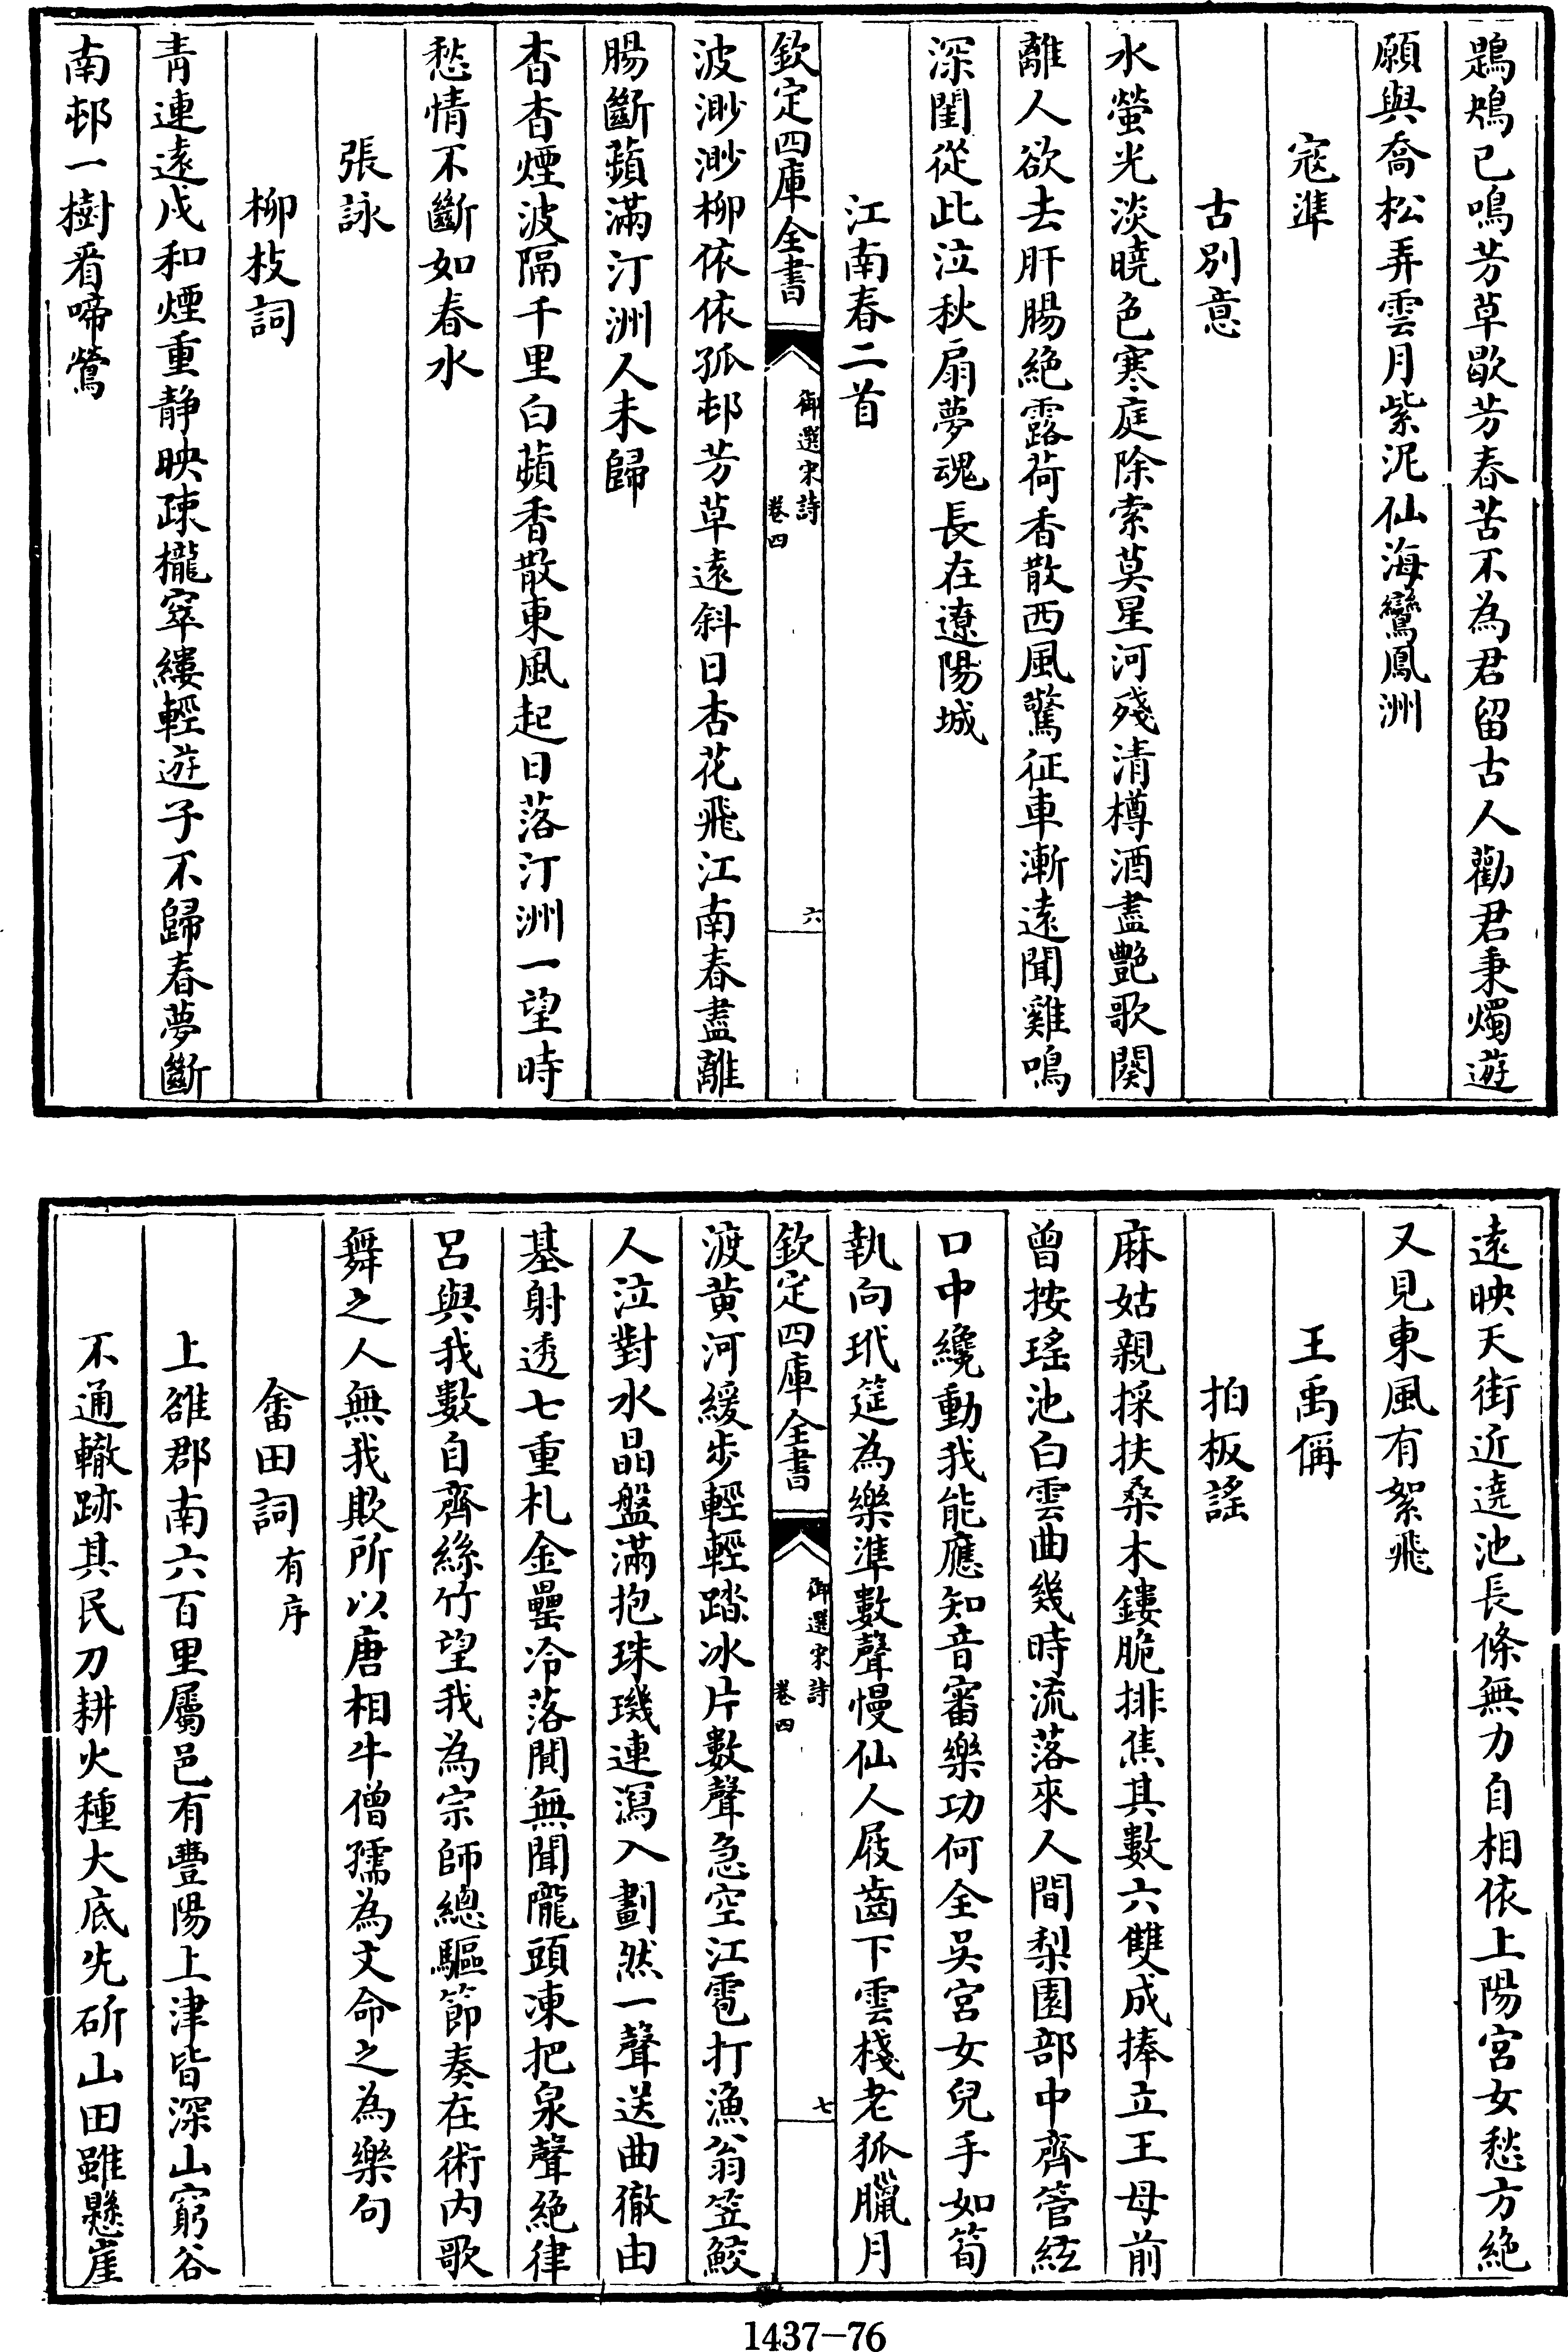 鶗鴂已鳴芳草歇芳春苦不為君留古人勸君秉燭遊
願與喬松弄雲月紫泥仙海鸞鳳洲
寇準
古別意
水螢光淡曉色寒庭除索莫星河殘清樽酒盡艶歌闋
離人欲去肝腸絶露荷香散西風驚征車漸遠聞雞鳴
深閨從此泣秋扇夢魂長在遼陽城
江南春二首
欽定四庫全書
御選宋詩
卷四
六
波渺渺柳依依孤邨芳草遠斜日杏花飛江南春盡離
腸斷蘋滿汀洲人未歸
杳杳煙波隔千里白蘋香散東風起日落汀洲一望時
愁情不斷如春水
張詠
柳枝詞
青連遠戍和煙重静映疎櫳窣縷輕遊子不歸春夢斷
南邨一樹看啼鶯
遠映天街近遶池長條無力自相依上陽宮女愁方絶
又見東風有絮飛
王禹偁
拍板謡
麻姑親採扶桑木鏤脆排焦其數六雙成捧立王母前
曾按瑤池白雲曲幾時流落來人間梨園部中齊管絃
口中纔動我能應知音審樂功何全吳宮女兒手如筍
執向玳筵為樂準數聲慢仙人屐齒下雲棧老狐臘月
欽定四庫全書
御選宋詩
卷四
七
渡黄河緩步輕輕踏冰片數聲急空江雹打漁翁笠鮫
人泣對水晶盤滿抱珠璣連瀉入劃然一聲送曲徹由
基射透七重札金罍冷落閴無聞隴頭凍把泉聲絶律
呂與我數自齊絲竹望我為宗師總驅節奏在術内歌
舞之人無我欺所以唐相牛僧孺為文命之為樂句
畬田詞有序
上雒郡南六百里屬邑有豐陽上津皆深山窮谷
不通轍跡其民刀耕火種大底先斫山田雖懸崖
1437-76